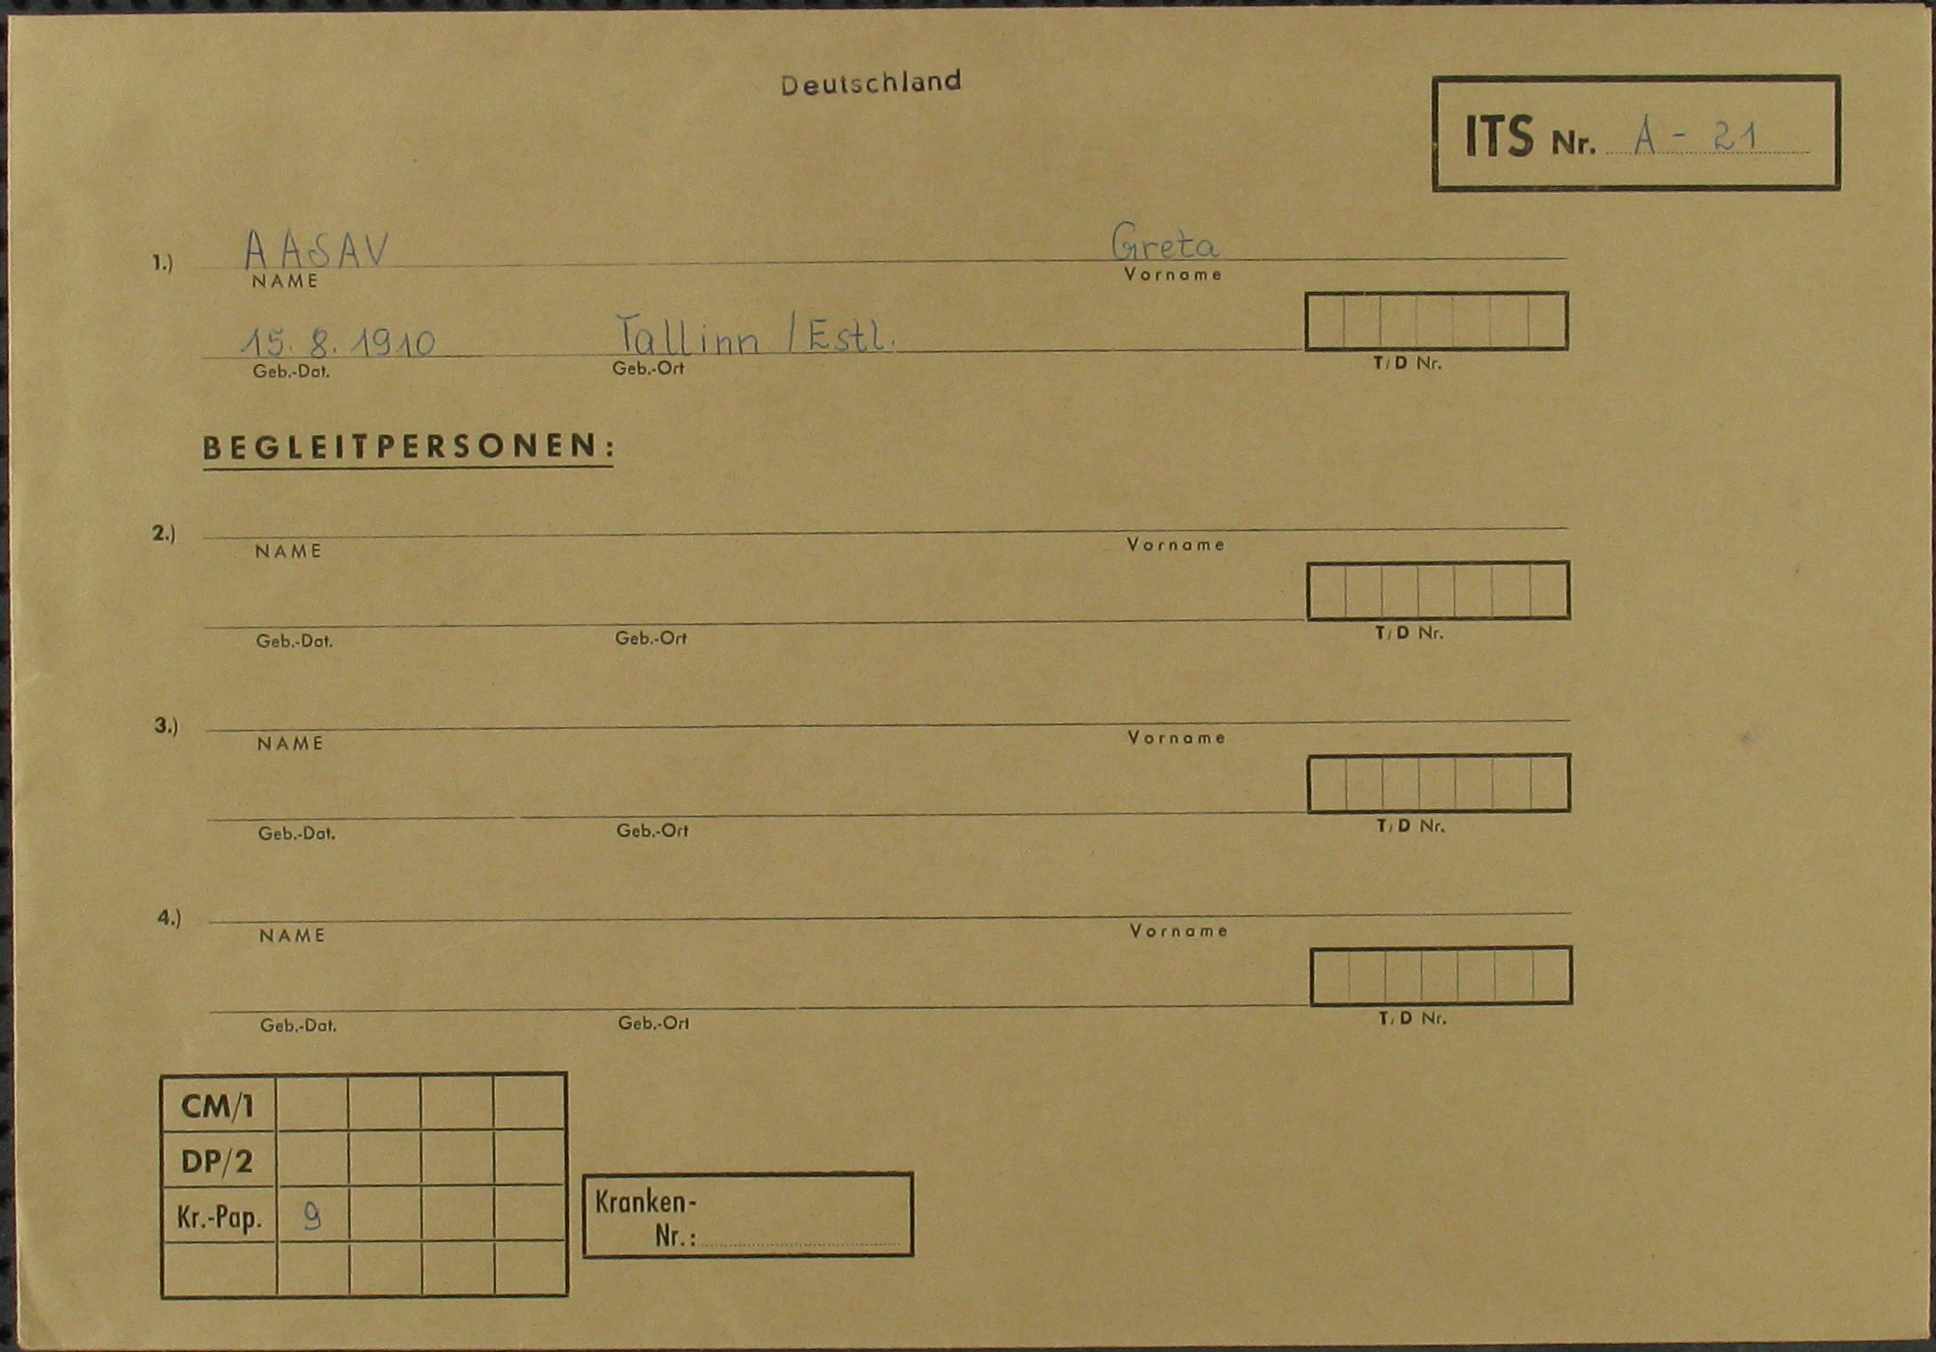 Deutschland
ITS Nr. A - 21
1.) AASAV Greta
NAME Vorname
15. 8. 1910 Tallinn / Estl.
Geb.-Dat. Geb.-Ort T/D Nr.
BEGLEITPERSONEN:
2.)
NAME Vorname
Geb.-Dat. Geb.-Ort T/D Nr.
3.)
NAME Vorname
Geb.-Dat. Geb.-Ort T/D Nr.
4.)
NAME Vorname
Geb.-Dat. Geb.-Ort T/D Nr.
CM/1
DP/2
Kr.-Pap. 9
Kranken-
Nr.: